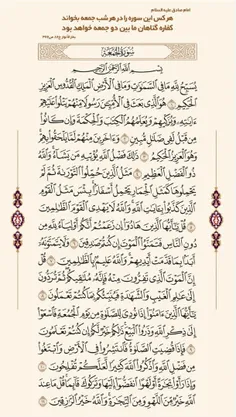 امام صادق علیه السلام
هر کس این سوره را در هر شب جمعه بخواند
کفاره گناهان ما بین دو جمعه خواهد بود
سُورَةُ الجُمُعَةِ
بِسْمِ اللَّهِ الرَّحْمَٰنِ الرَّحِيمِ
يُسَبِّحُ لِلَّهِ مَا فِي السَّمَاوَاتِ وَمَا فِي الْأَرْضِ الْمَلِكِ الْقُدُّوسِ الْعَزِيزِ
الْحَكِيمِ ١ هُوَ الَّذِي بَعَثَ فِي الْأُمِّيِّينَ رَسُولًا مِنْهُمْ يَتْلُو عَلَيْهِمْ
آيَاتِهِ وَيُزَكِّيهِمْ وَيُعَلِّمُهُمُ الْكِتَابَ وَالْحِكْمَةَ وَإِنْ كَانُوا
مِنْ قَبْلُ لَفِي ضَلَالٍ مُبِينٍ ٢ وَآخَرِينَ مِنْهُمْ لَمَّا يَلْحَقُوا بِهِمْ
وَهُوَ الْعَزِيزُ الْحَكِيمُ ٣ ذَٰلِكَ فَضْلُ اللَّهِ يُؤْتِيهِ مَنْ يَشَاءُ وَاللَّهُ
ذُو الْفَضْلِ الْعَظِيمِ ٤ مَثَلُ الَّذِينَ حُمِّلُوا التَّوْرَاةَ ثُمَّ لَمْ
يَحْمِلُوهَا كَمَثَلِ الْحِمَارِ يَحْمِلُ أَسْفَارًا بِئْسَ مَثَلُ الْقَوْمِ
الَّذِينَ كَذَّبُوا بِآيَاتِ اللَّهِ وَاللَّهُ لَا يَهْدِي الْقَوْمَ الظَّالِمِينَ ٥
قُلْ يَا أَيُّهَا الَّذِينَ هَادُوا إِنْ زَعَمْتُمْ أَنَّكُمْ أَوْلِيَاءُ لِلَّهِ مِنْ
دُونِ النَّاسِ فَتَمَنَّوُا الْمَوْتَ إِنْ كُنْتُمْ صَادِقِينَ ٦ وَلَا يَتَمَنَّوْنَهُ
أَبَدًا بِمَا قَدَّمَتْ أَيْدِيهِمْ وَاللَّهُ عَلِيمٌ بِالظَّالِمِينَ ٧ قُلْ
إِنَّ الْمَوْتَ الَّذِي تَفِرُّونَ مِنْهُ فَإِنَّهُ مُلَاقِيكُمْ ثُمَّ تُرَدُّونَ
إِلَىٰ عَالِمِ الْغَيْبِ وَالشَّهَادَةِ فَيُنَبِّئُكُمْ بِمَا كُنْتُمْ تَعْمَلُونَ ٨
يَا أَيُّهَا الَّذِينَ آمَنُوا إِذَا نُودِيَ لِلصَّلَاةِ مِنْ يَوْمِ الْجُمُعَةِ فَاسْعَوْا
إِلَىٰ ذِكْرِ اللَّهِ وَذَرُوا الْبَيْعَ ذَٰلِكُمْ خَيْرٌ لَكُمْ إِنْ كُنْتُمْ تَعْلَمُونَ
٩ فَإِذَا قُضِيَتِ الصَّلَاةُ فَانْتَشِرُوا فِي الْأَرْضِ وَابْتَغُوا
مِنْ فَضْلِ اللَّهِ وَاذْكُرُوا اللَّهَ كَثِيرًا لَعَلَّكُمْ تُفْلِحُونَ ١٠
وَإِذَا رَأَوْا تِجَارَةً أَوْ لَهْوًا انْفَضُّوا إِلَيْهَا وَتَرَكُوكَ قَائِمًا قُلْ مَا عِنْدَ
اللَّهِ خَيْرٌ مِنَ اللَّهْوِ وَمِنَ التِّجَارَةِ وَاللَّهُ خَيْرُ الرَّازِقِينَ ١١